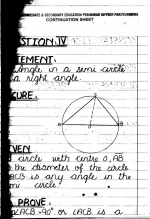 INTERMEDIATE & SECONDARY EDUCATION PESHAWAR KHYBER PAKHTUNKHWA
CONTINUATION SHEET
ESTION.IV
TEMENT:
angle in a semi circle
a right angle.
GURE:
A
B
VEN
circle with centre O, AB
the diameter of the circle
ACB is any angle in the
mi circle.
PROVE:
∠ACB=90° or ∠ACB is a